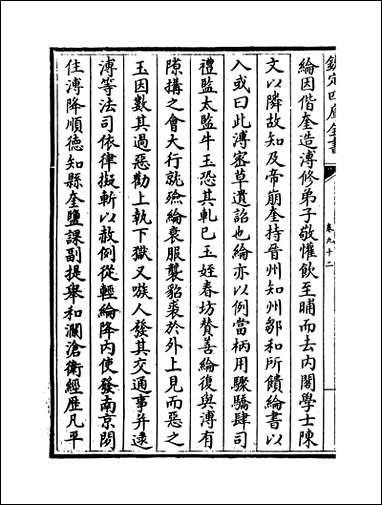 欽定四庫全書
卷九十二
綸因偕奎造溥修弟子敬懽飲至晡而去内閣學士陳
文以隣故知及帝崩奎持晉州知州鄒和所饋綸書以
入或曰此溥密草遺詔也綸亦以例當柄用驟驕肆司
禮監太監牛玉恐其軋已玉姪春坊賛善綸復與溥有
隙搆之會大行就殮綸衰服襲貂裘於外上見而惡之
玉因數其過惡勸上執下獄又嗾人發其交通事并逮
溥等法司依律擬斬以赦例從輕綸降内使發南京閒
住溥降順德知縣奎鹽課副提舉和瀾滄衛經歴凡平